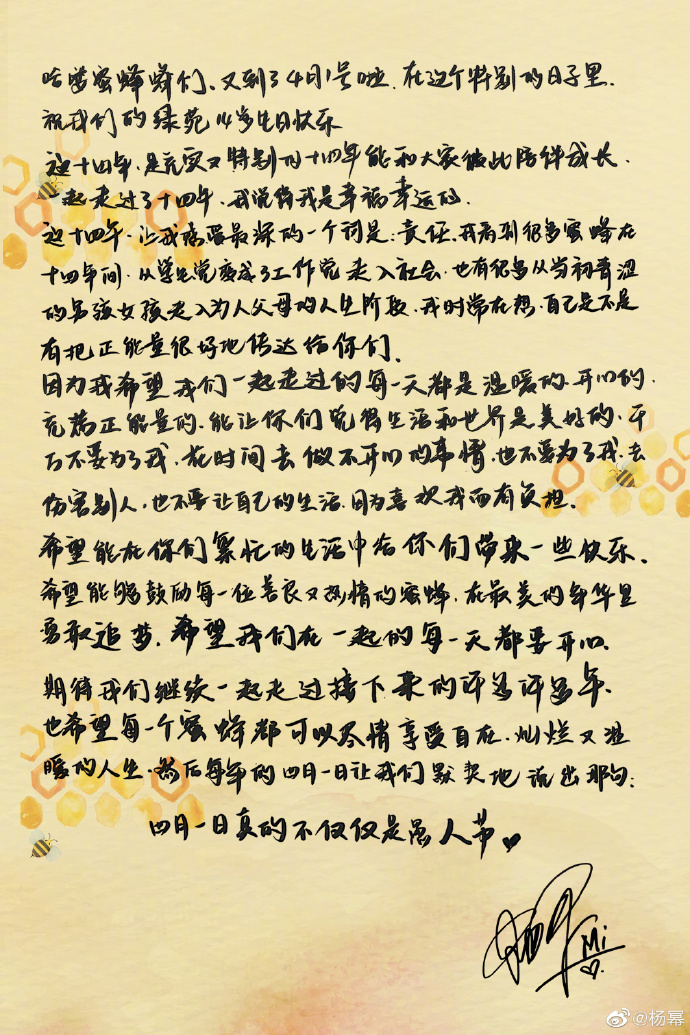 哈喽蜜蜂蜂们、又到了4月1号啦.在这个特别的日子里.
祝我们的绿苑14岁生日快乐
这十四年.是充实又特别的十四年能和大家彼此陪伴成长.
一起走过了十四年.我说得我是幸福幸运的.
这十四年.让我感受最深的一个词是:责任.我看到很多蜜蜂在
十四年间.从学生党变成了工作党走入社会.也有很多从当初青涩
的男孩女孩走入为人父母的人生阶段.我时常在想.自己是不是
有把正能量很好地传达给你们.
因为我希望我们一起走过的每一天都是温暖的.开心的.
充满正能量的.能让你们觉得生活和世界是美好的.千
万不要为了我.花时间去做不开心的事情.也不要为了我.去
伤害别人.也不要让自己的生活.因为喜欢我而有负担.
希望能在你们繁忙的生活中给你们带来一些快乐.
希望能够鼓励每一位善良又热情的蜜蜂.在最美的年华里
勇敢追梦.希望我们在一起的每一天都要开心.
期待我们继续一起走过接下来的许多许多年.
也希望每一个蜜蜂都可以尽情享受自在.灿烂又温
暖的人生.然后每年的四月一日让我们默契地说出那句:
四月一日真的不仅仅是愚人节♥
杨幂 Mi ♡
@杨幂